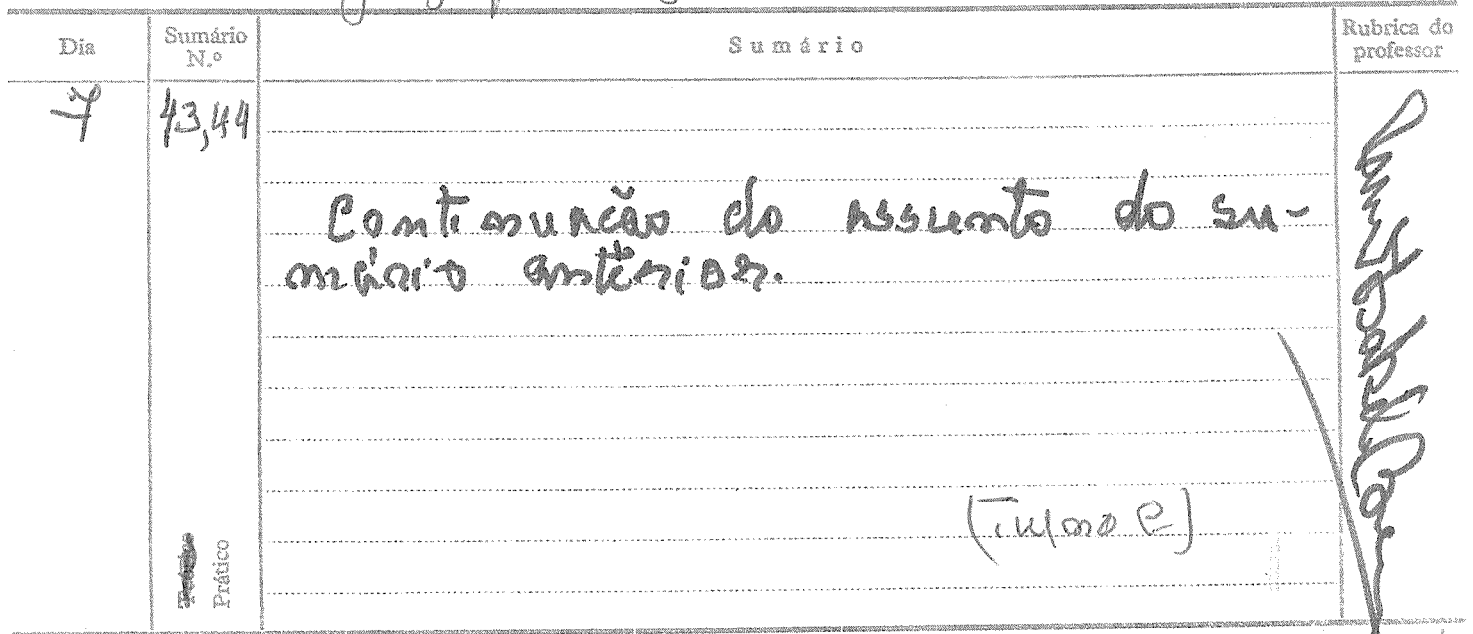 Dia
Sumário
N.º
Sumário
Rubrica do
professor
7
43,44
Continuacão do assunto do su-
mário anterior.
(Turma C)
Prático